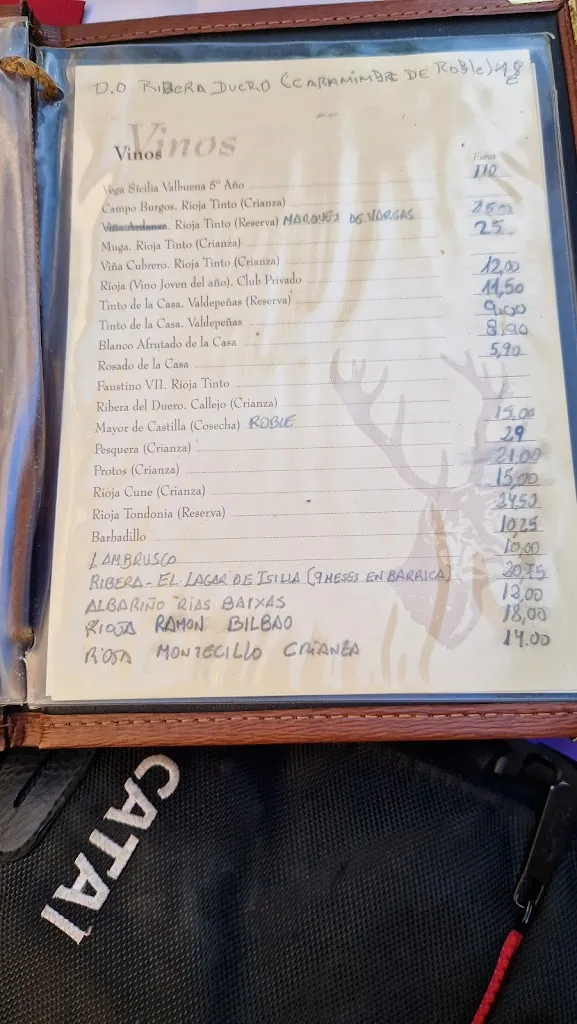 D.O RIBERA DUERO (CARAMIMBRE DE Roble) 18 €
Vinos
Vinos
Euros
Vega Sicilia Valbuena 5º Año 110
Campo Burgos. Rioja Tinto (Crianza)
Viña Ardanza. Rioja Tinto (Reserva) MARQUÉS DE VARGAS 25
Muga. Rioja Tinto (Crianza) 25
Viña Cubrero. Rioja Tinto (Crianza)
Rioja (Vino Joven del año). Club Privado 12,00
Tinto de la Casa. Valdepeñas (Reserva) 11,50
Tinto de la Casa. Valdepeñas 9,00
Blanco Afrutado de la Casa 8,90
Rosado de la Casa 5,90
Faustino VII. Rioja Tinto
Ribera del Duero. Callejo (Crianza)
Mayor de Castilla (Cosecha) ROBLE 15,00
Pesquera (Crianza) 29
Protos (Crianza) 21.00
Rioja Cune (Crianza) 15,00
Rioja Tondonia (Reserva) 24,50
Barbadillo 10,25
LAMBRUSCO 10,00
RIBERA - EL LAGAR DE ISILLA (9 MESES EN BARRICA) 20,75
ALBARIÑO RIAS BAIXAS 12,00
RIOJA RAMON BILBAO 18,00
RIOJA MONTECILLO CRIANZA 14.00
CATAI